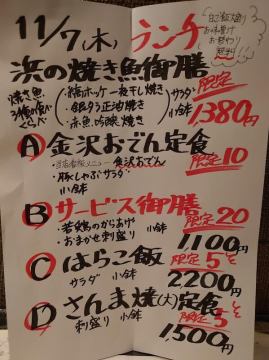 11/7(木) ランチ
ご飯大盛り
お味噌汁
お替わり
無料!!
浜の焼き魚御膳
焼き魚
3種の食べ
くらべ
・縞ホッケ一夜干し焼き
・銀ダラ正油焼き
・赤魚吟醸焼き
サラダ
小鉢
限定
1380円
Ⓐ金沢おでん定食
・当店看板メニュー 金沢おでん
・豚しゃぶサラダ
小鉢
限定10
Ⓑサービス御膳
・若鶏のからあげ
・おまかせ刺盛り
小鉢
限定20
1,100円
Ⓒはらこ飯
限定5
サラダ 小鉢
2200円
Ⓓさんま焼(大)定食
刺盛り 小鉢
限定5
1,500円